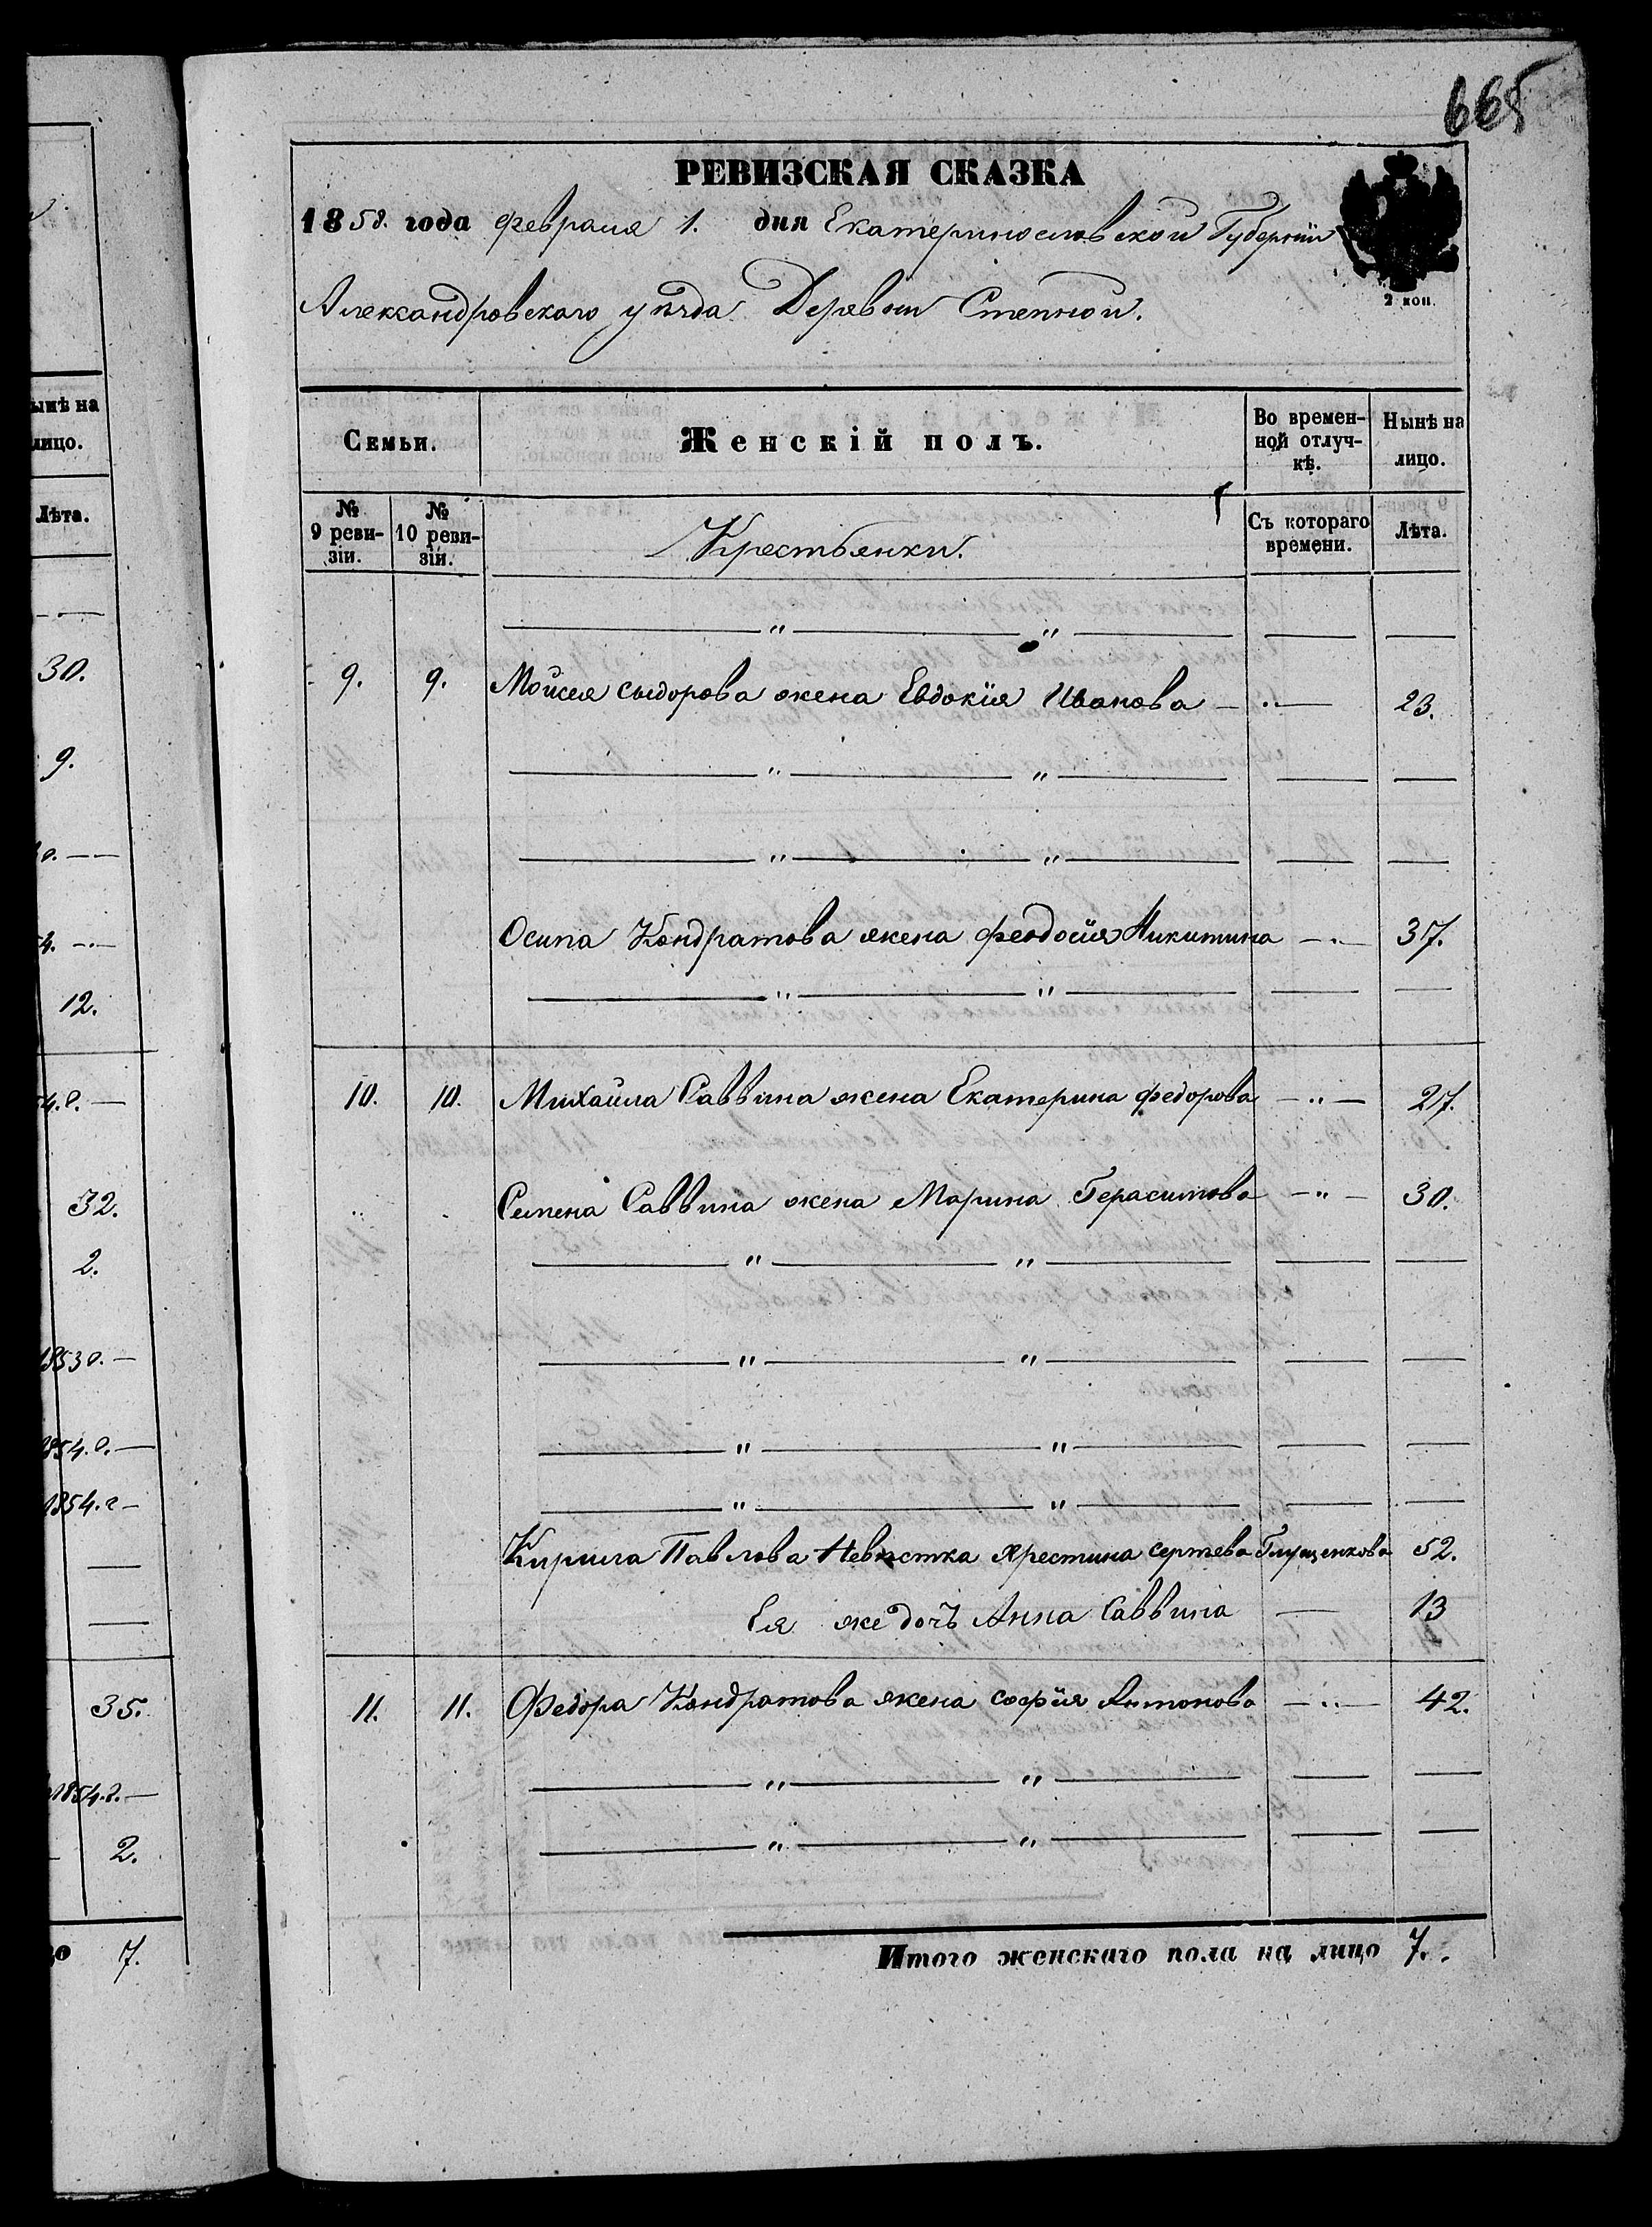 665
РЕВИЗСКАЯ СКАЗКА
1858. года февраля 1. дня Екатеринославской Губернии
2 коп.
Александровскаго уѣзда Деревни Степной.
Семьи.
Женскій полъ.
Во времен-
ной отлуч-
кѣ.
Нынѣ на
лицо.
№
9 реви-
зіи.
№
10 реви-
зіи.
Крестьянки.
Съ котораго
времени.
Лѣта.
9. 9. Мойсея сыдорова жена Евдокія Иванова 23.
Осипа Кондратова жена феодосия Никитина 37.
10. 10. Михайла Саввина жена Екатерина федорова 27.
Семена Саввина жена Марина Герасимова 30.
Кирила Павлова Невѣстка Хрестина Глущенкова 52.
Ея же дочъ Анна Саввина 13
11. 11. Федора Кондратова жена софія Антонова 42.
Итого женскаго пола на лицо 7.
ынѣ на
лицо.
Лѣта.
30.
9.
12.
32.
2.
1853
1854.
1854.
35.
1854.
2.
7.